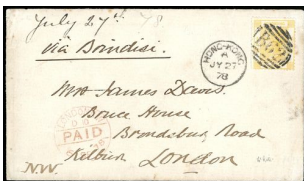 July 27th 78.
via Brindisi.
HONG-KONG
JY 27
78
Mrs James Davis.
Bruce House
PAID
Brondsbury Road
Kilburn London
N.W.